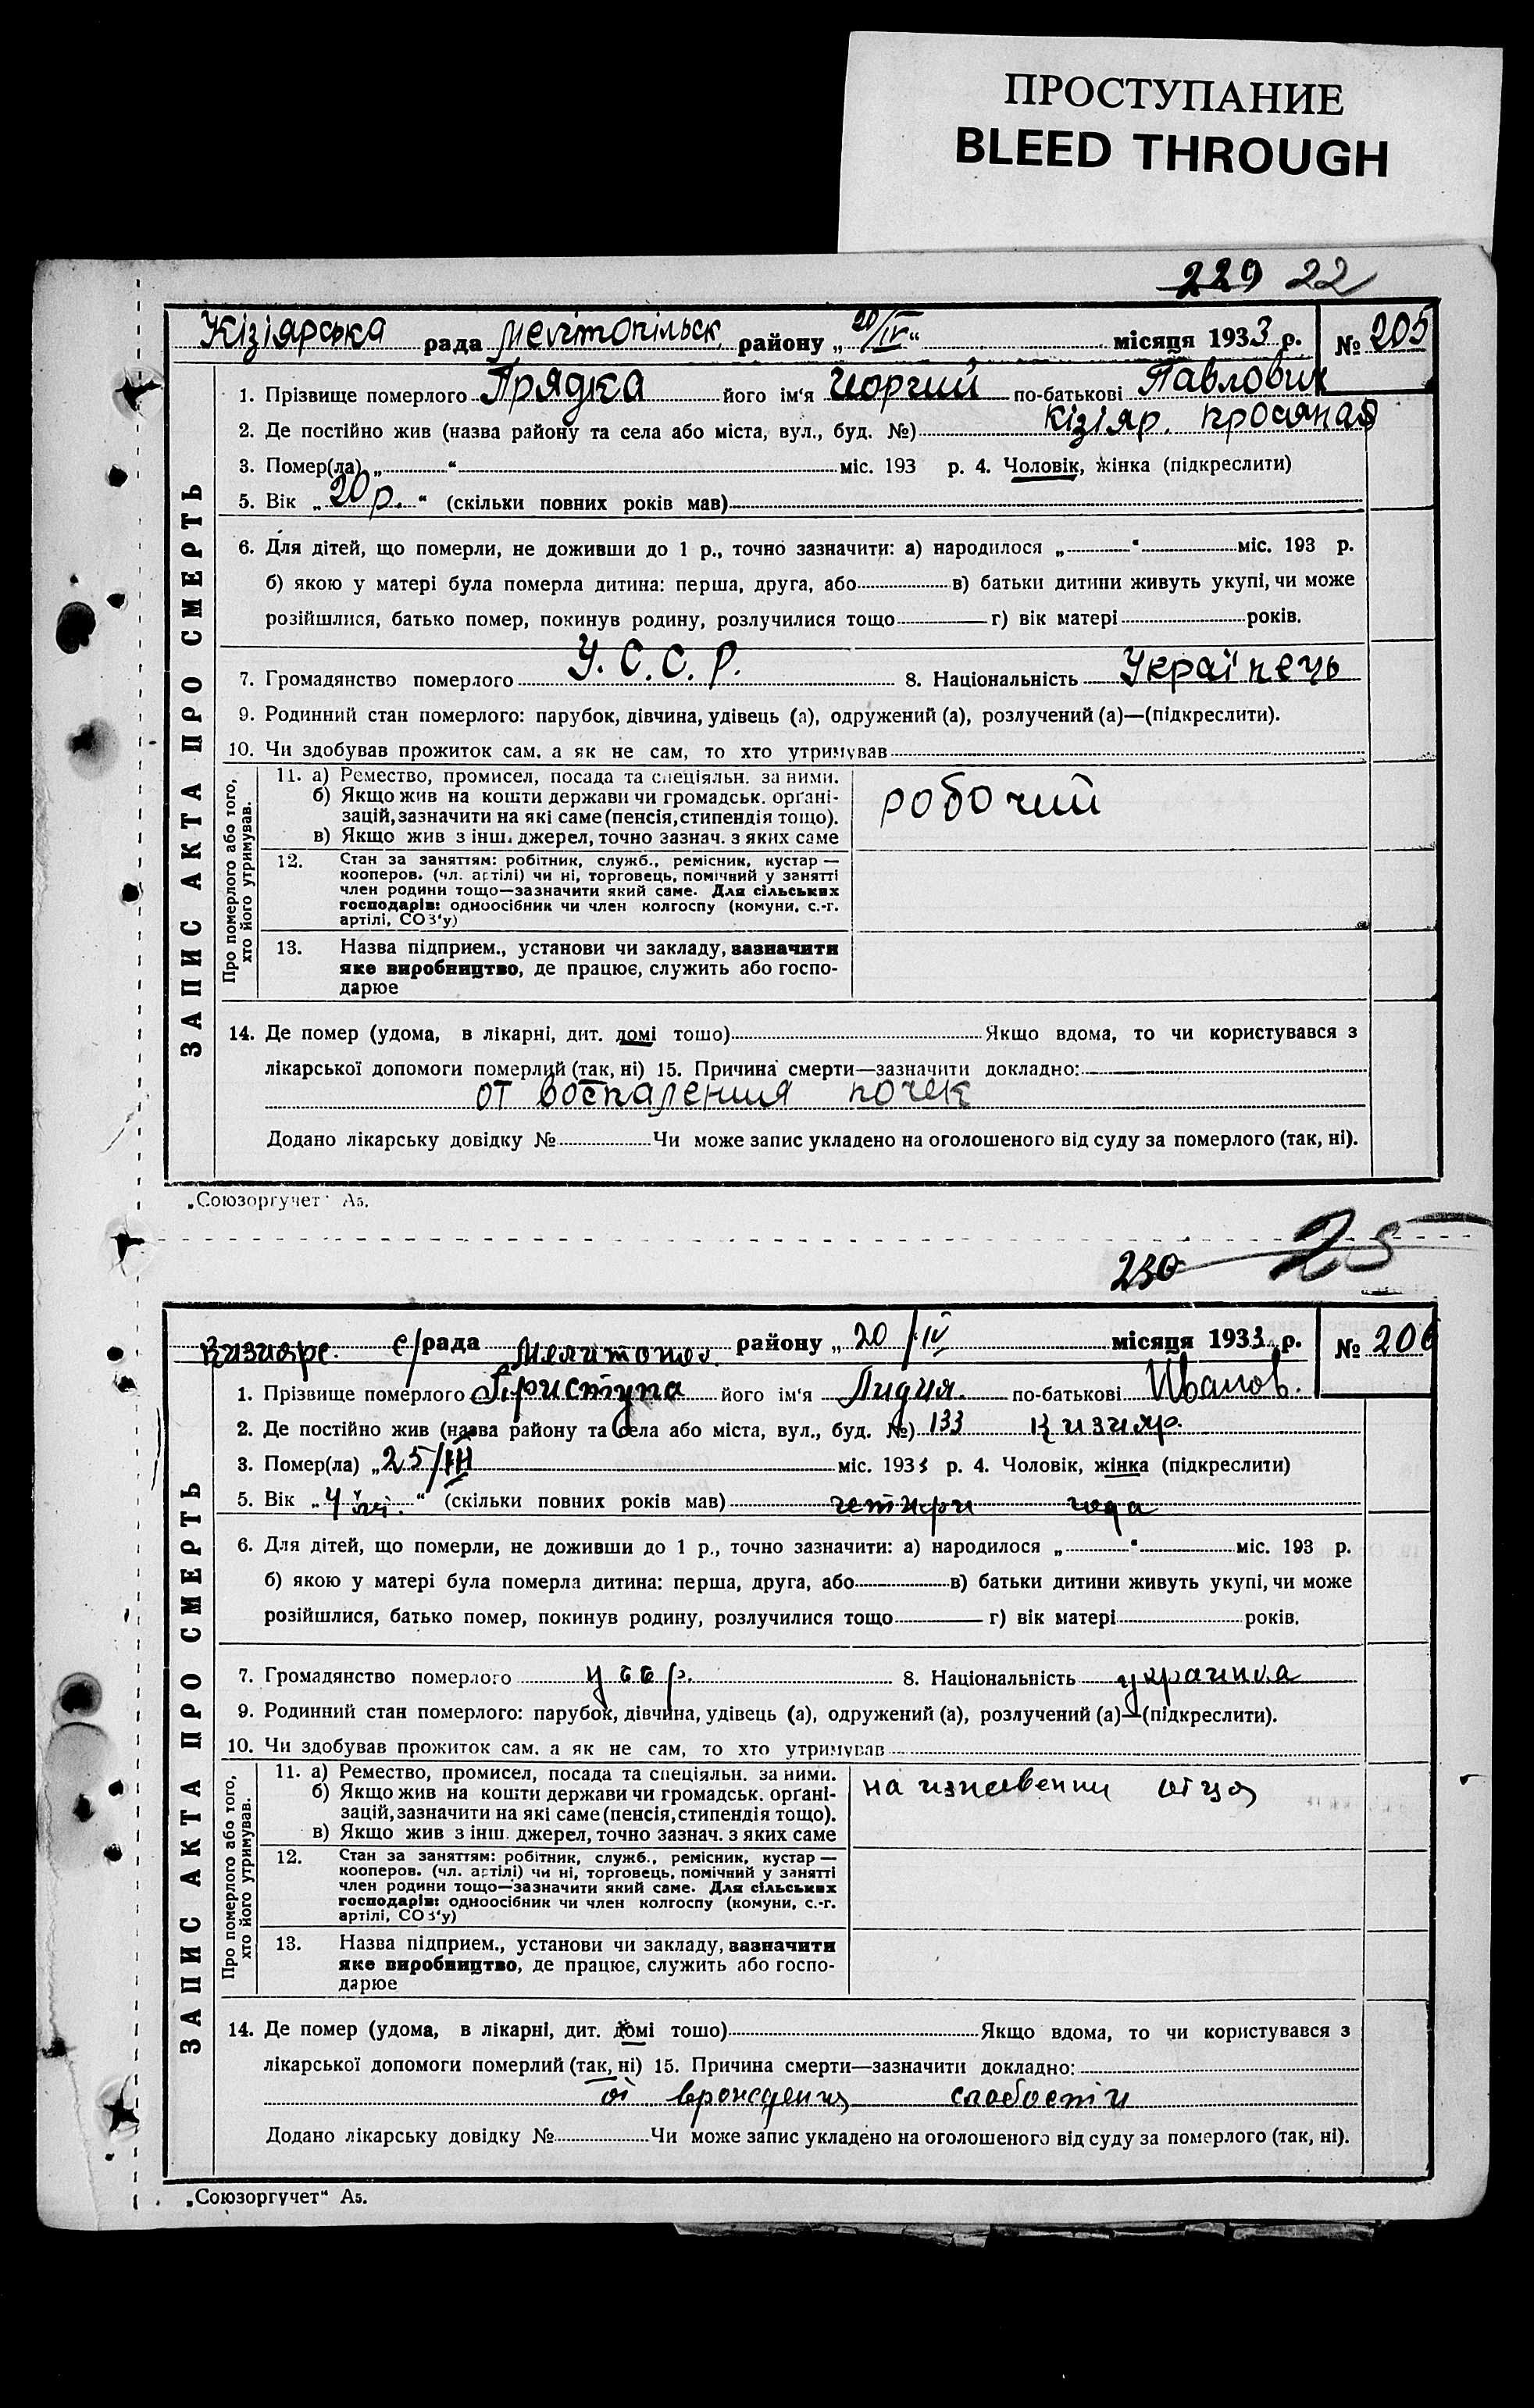 ПРОСТУПАНИЕ
BLEED THROUGH
229 22
Кізіярська рада Мелітопільск. району „20/IV“ місяця 1933 р. № 205
1. Прізвище померлого Прядка його ім'я Иоргий по-батькові Павлович
2. Де постійно жив (назва району та села або міста, вул., буд. №) Кізіяр.
3. Помер(ла) „ “ міс. 193 р. 4. Чоловік, жінка (підкреслити)
5. Вік „20 р.“ (скільки повних років мав)
6. Для дітей, що померли, не доживши до 1 р., точно зазначити: а) народилося „ “ міс. 193 р.
б) якою у матері була померла дитина: перша, друга, або в) батьки дитини живуть укупі, чи може
розійшлися, батько помер, покинув родину, розлучилися тощо г) вік матері років.
7. Громадянство померлого У.С.С.Р. 8. Національність Украінець
9. Родинний стан померлого: парубок, дівчина, удівець (а), одружений (а), розлучений (а)—(підкреслити).
10. Чи здобував прожиток сам, а як не сам, то хто утримував
ЗАПИС АКТА ПРО СМЕРТЬ
Про померлого або того, хто його утримував.
11. а) Ремество, промисел, посада та спеціяльн. за ними. робочий
б) Якщо жив на кошти держави чи громадськ. орґані-
зацій, зазначити на які саме (пенсія, стипендія тощо).
в) Якщо жив з інш. джерел, точно зазнач. з яких саме
12. Стан за заняттям: робітник, служб., ремісник, кустар —
кооперов. (чл. артілі) чи ні, торговець, помічний у занятті
член родини тощо—зазначити який саме. Для сільських
господарів: одноосібник чи член колгоспу (комуни, с.-г.
артілі, СОЗ'у)
13. Назва підприєм., установи чи закладу, зазначити
яке виробництво, де працює, служить або госпо-
дарює
14. Де помер (удома, в лікарні, дит. домі тошо) Якщо вдома, то чи користувався з
лікарської допомоги померлий (так, ні) 15. Причина смерти—зазначити докладно:
от воспаления почек
Додано лікарську довідку № Чи може запис укладено на оголошеного від суду за померлого (так, ні).
„Союзоргучет“ А5.
230 25
Кизияре. с/рада Мелитопол. району „20/IV місяця 1933 р. № 206
1. Прізвище померлого Приступа його ім'я Лидия. по-батькові Иванов.
2. Де постійно жив (назва району та села або міста, вул., буд. №) 133 Кизияр.
3. Помер(ла) „25/III міс. 1933 р. 4. Чоловік, жінка (підкреслити)
5. Вік „4 “ (скільки повних років мав) четыри года
6. Для дітей, що померли, не доживши до 1 р., точно зазначити: а) народилося „ “ міс. 193 р.
б) якою у матері була померла дитина: перша, друга, або в) батьки дитини живуть укупі, чи може
розійшлися, батько помер, покинув родину, розлучилися тощо г) вік матері років.
7. Громадянство померлого УССР. 8. Національність украинка
9. Родинний стан померлого: парубок, дівчина, удівець (а), одружений (а), розлучений (а)—(підкреслити).
10. Чи здобував прожиток сам, а як не сам, то хто утримував
ЗАПИС АКТА ПРО СМЕРТЬ
Про померлого або того, хто його утримував.
11. а) Ремество, промисел, посада та спеціяльн. за ними. на отца
б) Якщо жив на кошти держави чи громадськ. орґані-
зацій, зазначити на які саме (пенсія, стипендія тощо).
в) Якщо жив з інш. джерел, точно зазнач. з яких саме
12. Стан за заняттям: робітник, служб., ремісник, кустар —
кооперов. (чл. артілі) чи ні, торговець, помічний у занятті
член родини тощо—зазначити який саме. Для сільських
господарів: одноосібник чи член колгоспу (комуни, с.-г.
артілі, СОЗ'у)
13. Назва підприєм., установи чи закладу, зазначити
яке виробництво, де працює, служить або госпо-
дарює
14. Де помер (удома, в лікарні, дит. домі тошо) Якщо вдома, то чи користувався з
лікарської допомоги померлий (так, ні) 15. Причина смерти—зазначити докладно:
от врождения слабости
Додано лікарську довідку № Чи може запис укладено на оголошеного від суду за померлого (так, ні).
„Союзоргучет“ А5.